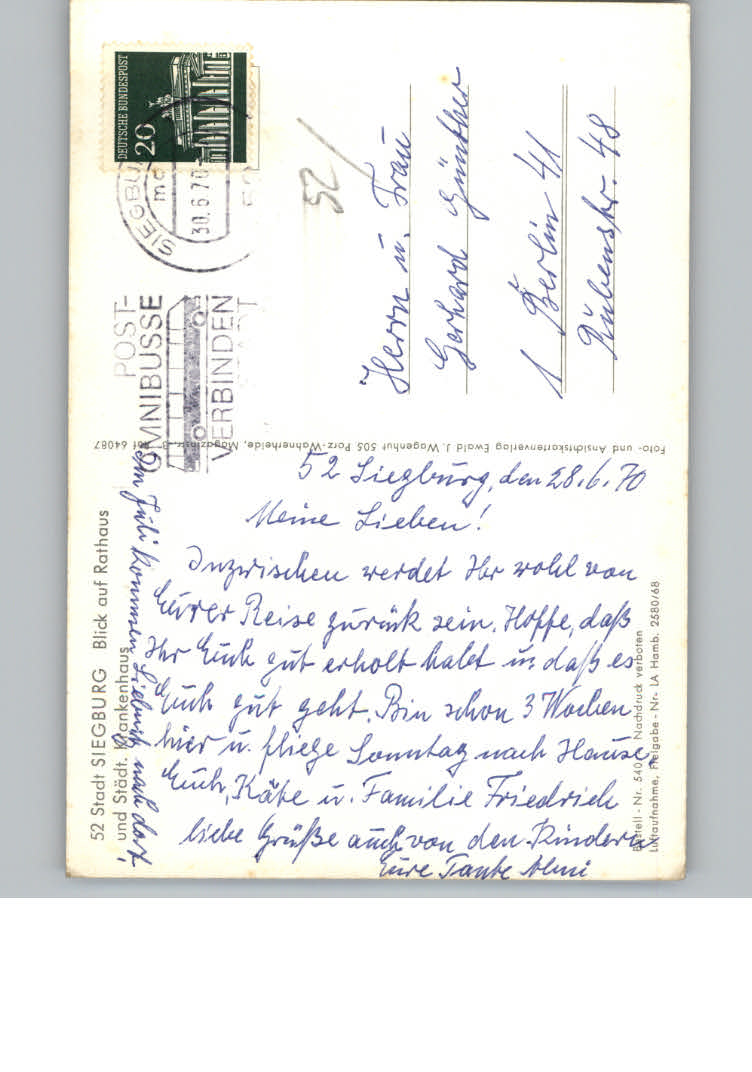 52 Stadt SIEGBURG Blick auf Rathaus
und Städt. Krankenhaus
52 Siegburg, den 28.6.70
Meine Lieben!
Inzwischen werdet Ihr wohl von
Eurer Reise zurück sein. Hoffe, daß
Ihr Euch gut erholt habt u. daß es
Euch gut geht. Bin schon 3 Wochen
hier u. fliege Sonntag nach Hause.
Euch, Käte u. Familie Friedrich
liebe Grüße auch von den Kindern
Eure Tante
Im Juli kommen nach dort!
Foto- und Ansichtskartenverlag Ewald J. Wagenhut 505 Porz-Wahnerheide, Magazinstr. Ruf 64087
Bestell-Nr. 540 Nachdruck verboten
Luftaufnahme, Freigabe-Nr. LA Hamb. 2580/68
DEUTSCHE BUNDESPOST
20
SIEGBU
30.6.70
POST-
OMNIBUSSE
VERBINDEN
52/
Herrn u. Frau
Gerhard Günther
1 Berlin 41
Rubensstr. 48